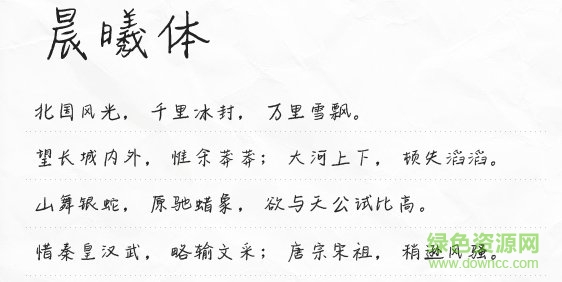 晨曦体
北国风光，千里冰封，万里雪飘。
望长城内外，惟余莽莽；大河上下，顿失滔滔。
山舞银蛇，原驰蜡象，欲与天公试比高。
惜秦皇汉武，略输文采；唐宗宋祖，稍逊风骚。
绿色资源网
www.downcc.com